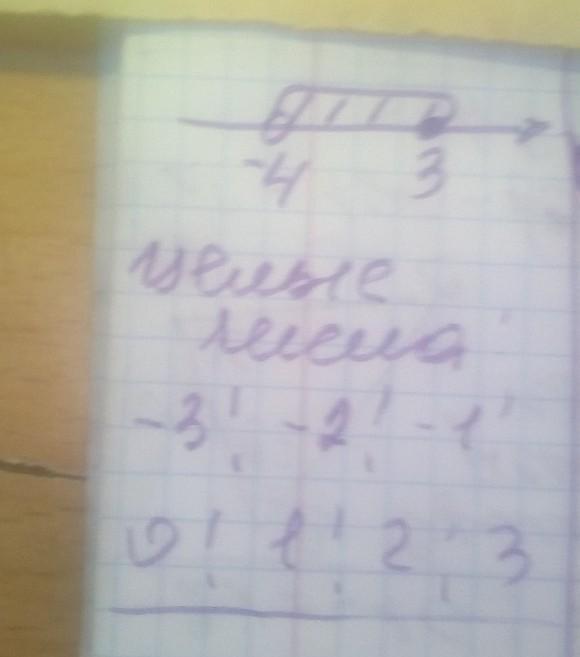 -4 3
целые
числа
-3; -2; -1
0; 1; 2; 3